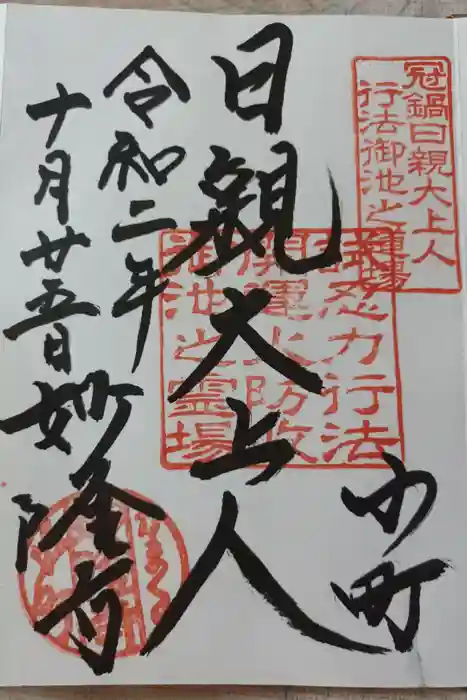 冠鍋日親大上人
行法御池之道場
小町
日親大上人
忍力行法
開運火防
御池之霊場
令和二年
十月廿五日 妙隆寺